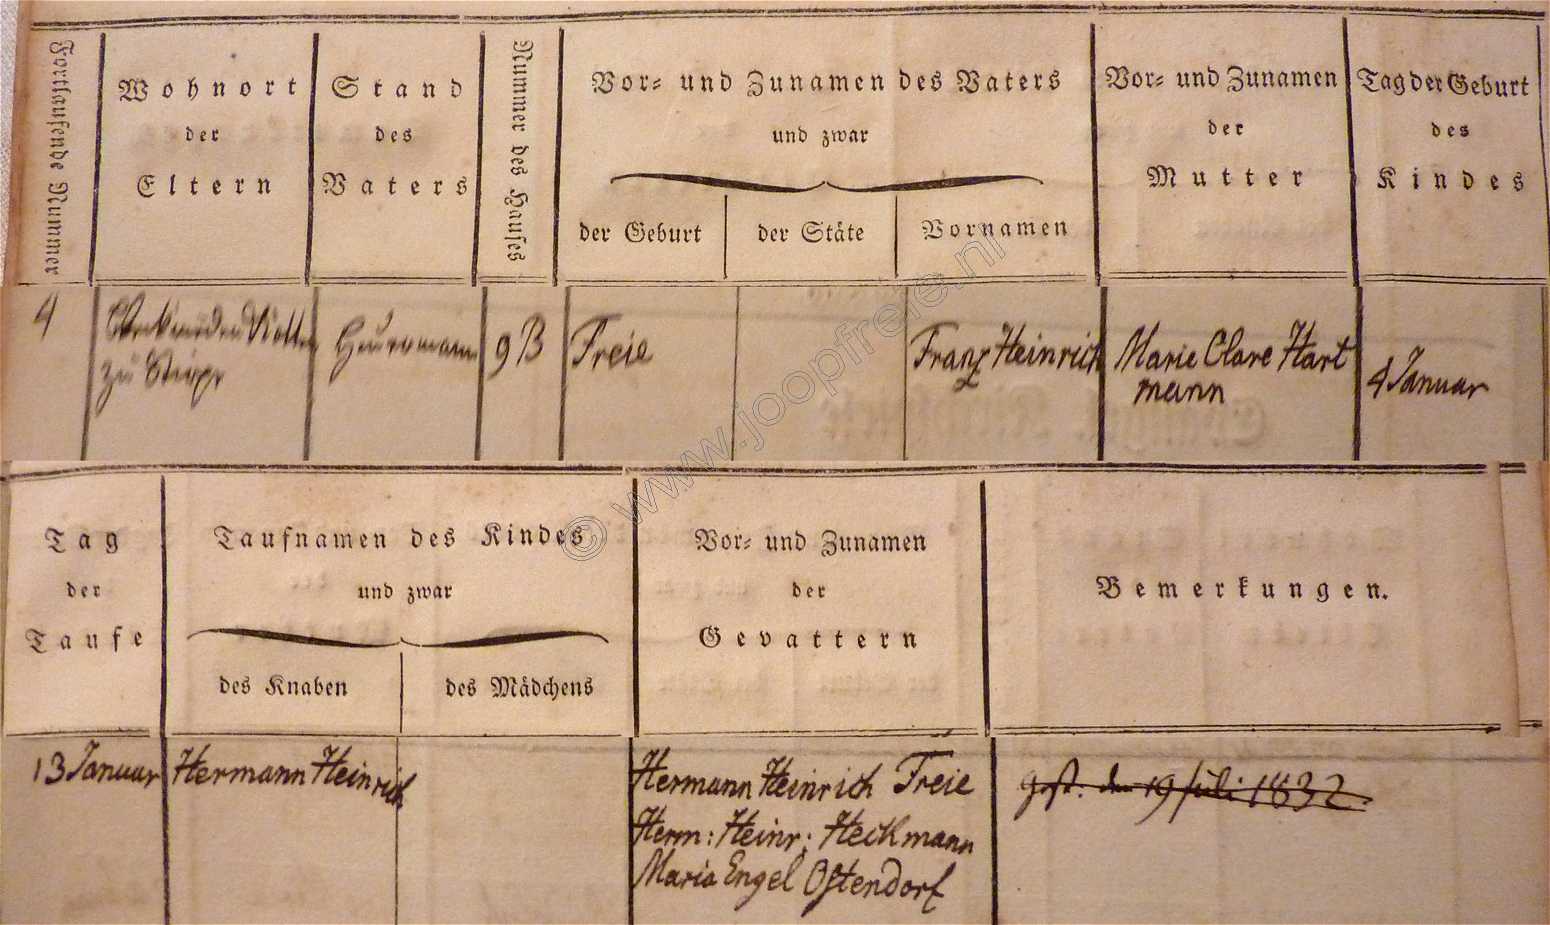 Fortlaufende Nummer
Wohnort
der
Eltern
Stand
des
Vaters
Nummer des Hauses
Vor- und Zunamen des Vaters
und zwar
der Geburt
der Stäte
Vornamen
Vor- und Zunamen
der
Mutter
Tag der Geburt
des
Kindes
4
zu
Heuermann
9 B
Freie
Franz Heinrich
Marie Clare Hart
mann
4 Januar
Tag
der
Taufe
Taufnamen des Kindes
und zwar
des Knaben
des Mädchens
Vor- und Zunamen
der
Gevattern
Bemerkungen.
13 Januar
Hermann Heinrich
Hermann Heinrich Freie
Herm: Heinr: Heckmann
Maria Engel Ostendorf
gest. den 19 Juli 1832.
© www.joopfreie.nl